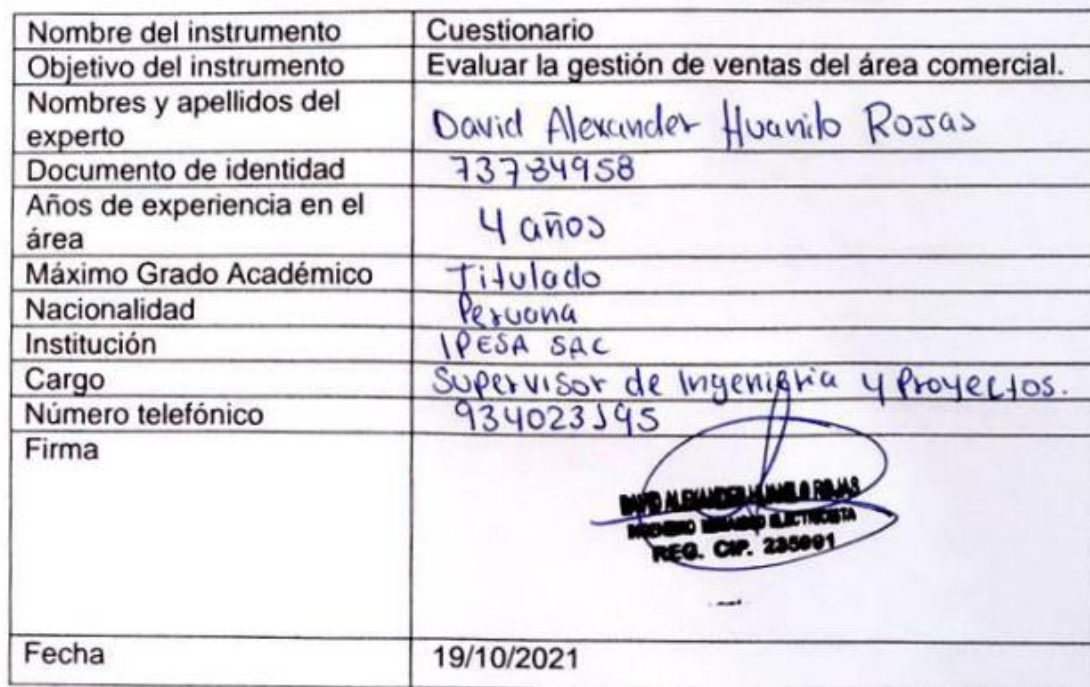 Nombre del instrumento Cuestionario
Objetivo del instrumento Evaluar la gestión de ventas del área comercial.
Nombres y apellidos del
experto David Alexander Huanilo Rojas
Documento de identidad 73784958
Años de experiencia en el
área 4 años
Máximo Grado Académico Titulado
Nacionalidad Peruana
Institución IPESA SAC
Cargo Supervisor de Ingenieria y Proyectos.
Número telefónico
Firma
DAVID ALEXANDER HUANILO ROJAS
INGENIERO MECANICO ELECTRICISTA
REG. CIP. 235991
Fecha 19/10/2021